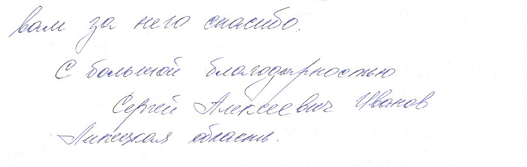 вам за него спасибо.
С большой благодарностью
Сергей Алексеевич Иванов
Липецкая область.